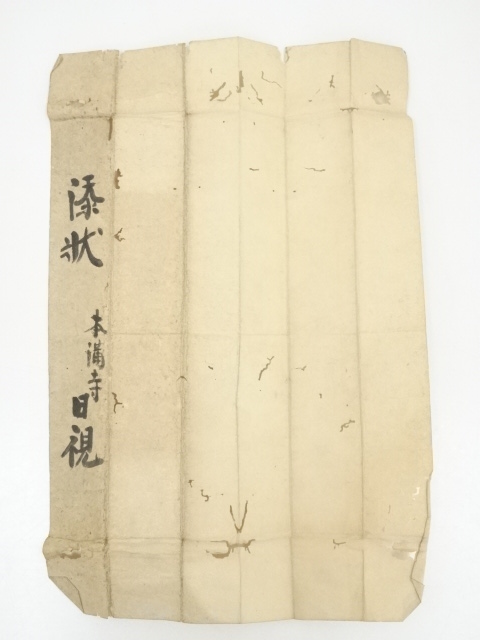 添状
本満寺
日視